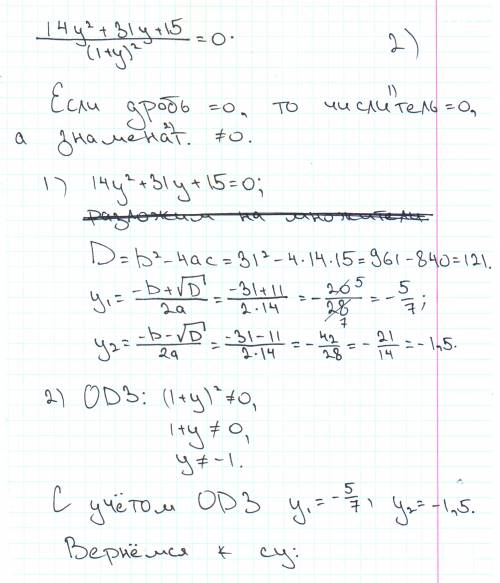 (14y² + 31y + 15)/(1+y)² = 0.
2)
Если дробь = 0, то числитель¹⁾ = 0,
а знаменат.²⁾ ≠ 0.
1) 14y² + 31y + 15 = 0;
разложим на множители
D = b² - 4ac = 31² - 4·14·15 = 961 - 840 = 121.
y₁ = (-b + √D)/2a = (-31 + 11)/(2·14) = -20⁵/28₇ = -5/7;
y₂ = (-b - √D)/2a = (-31 - 11)/(2·14) = -42/28 = -21/14 = -1,5.
2) ОДЗ: (1+y)² ≠ 0,
1 + y ≠ 0,
y ≠ -1.
С учётом ОДЗ y₁ = -5/7, y₂ = -1,5.
Вернёмся к су: